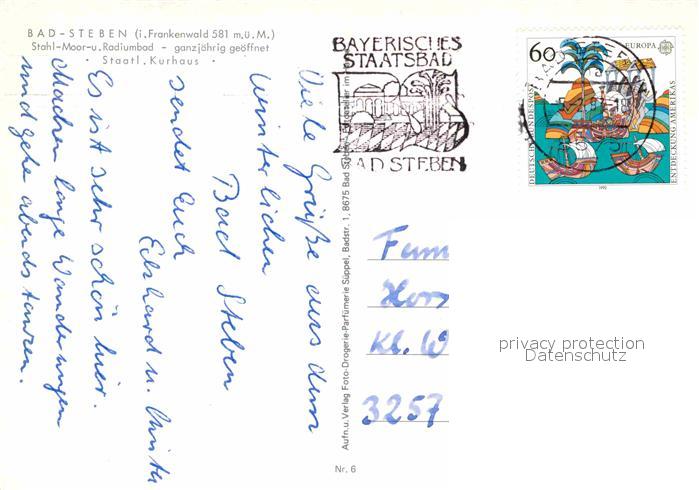 BAD-STEBEN (i. Frankenwald 581 m.ü.M.)
Stahl-Moor-u. Radiumbad - ganzjährig geöffnet
· Staatl. Kurhaus ·
BAYERISCHES
STAATSBAD
BAD STEBEN
60
EUROPA
DEUTSCHE BUNDESPOST
ENTDECKUNG AMERIKAS
1992
Viele Grüße aus dem
winterlichen
Bad Steben
sendet Euch
Eckhard u. Christa
Es ist sehr schön hier.
Machen lange Wanderungen
und gehe abends tanzen.
Aufn. u. Verlag Foto-Drogerie-Parfümerie Süppel, Badstr. 1, 8675 Bad Steben
Nr. 6
Fam
Kl. W
3257
privacy protection
Datenschutz